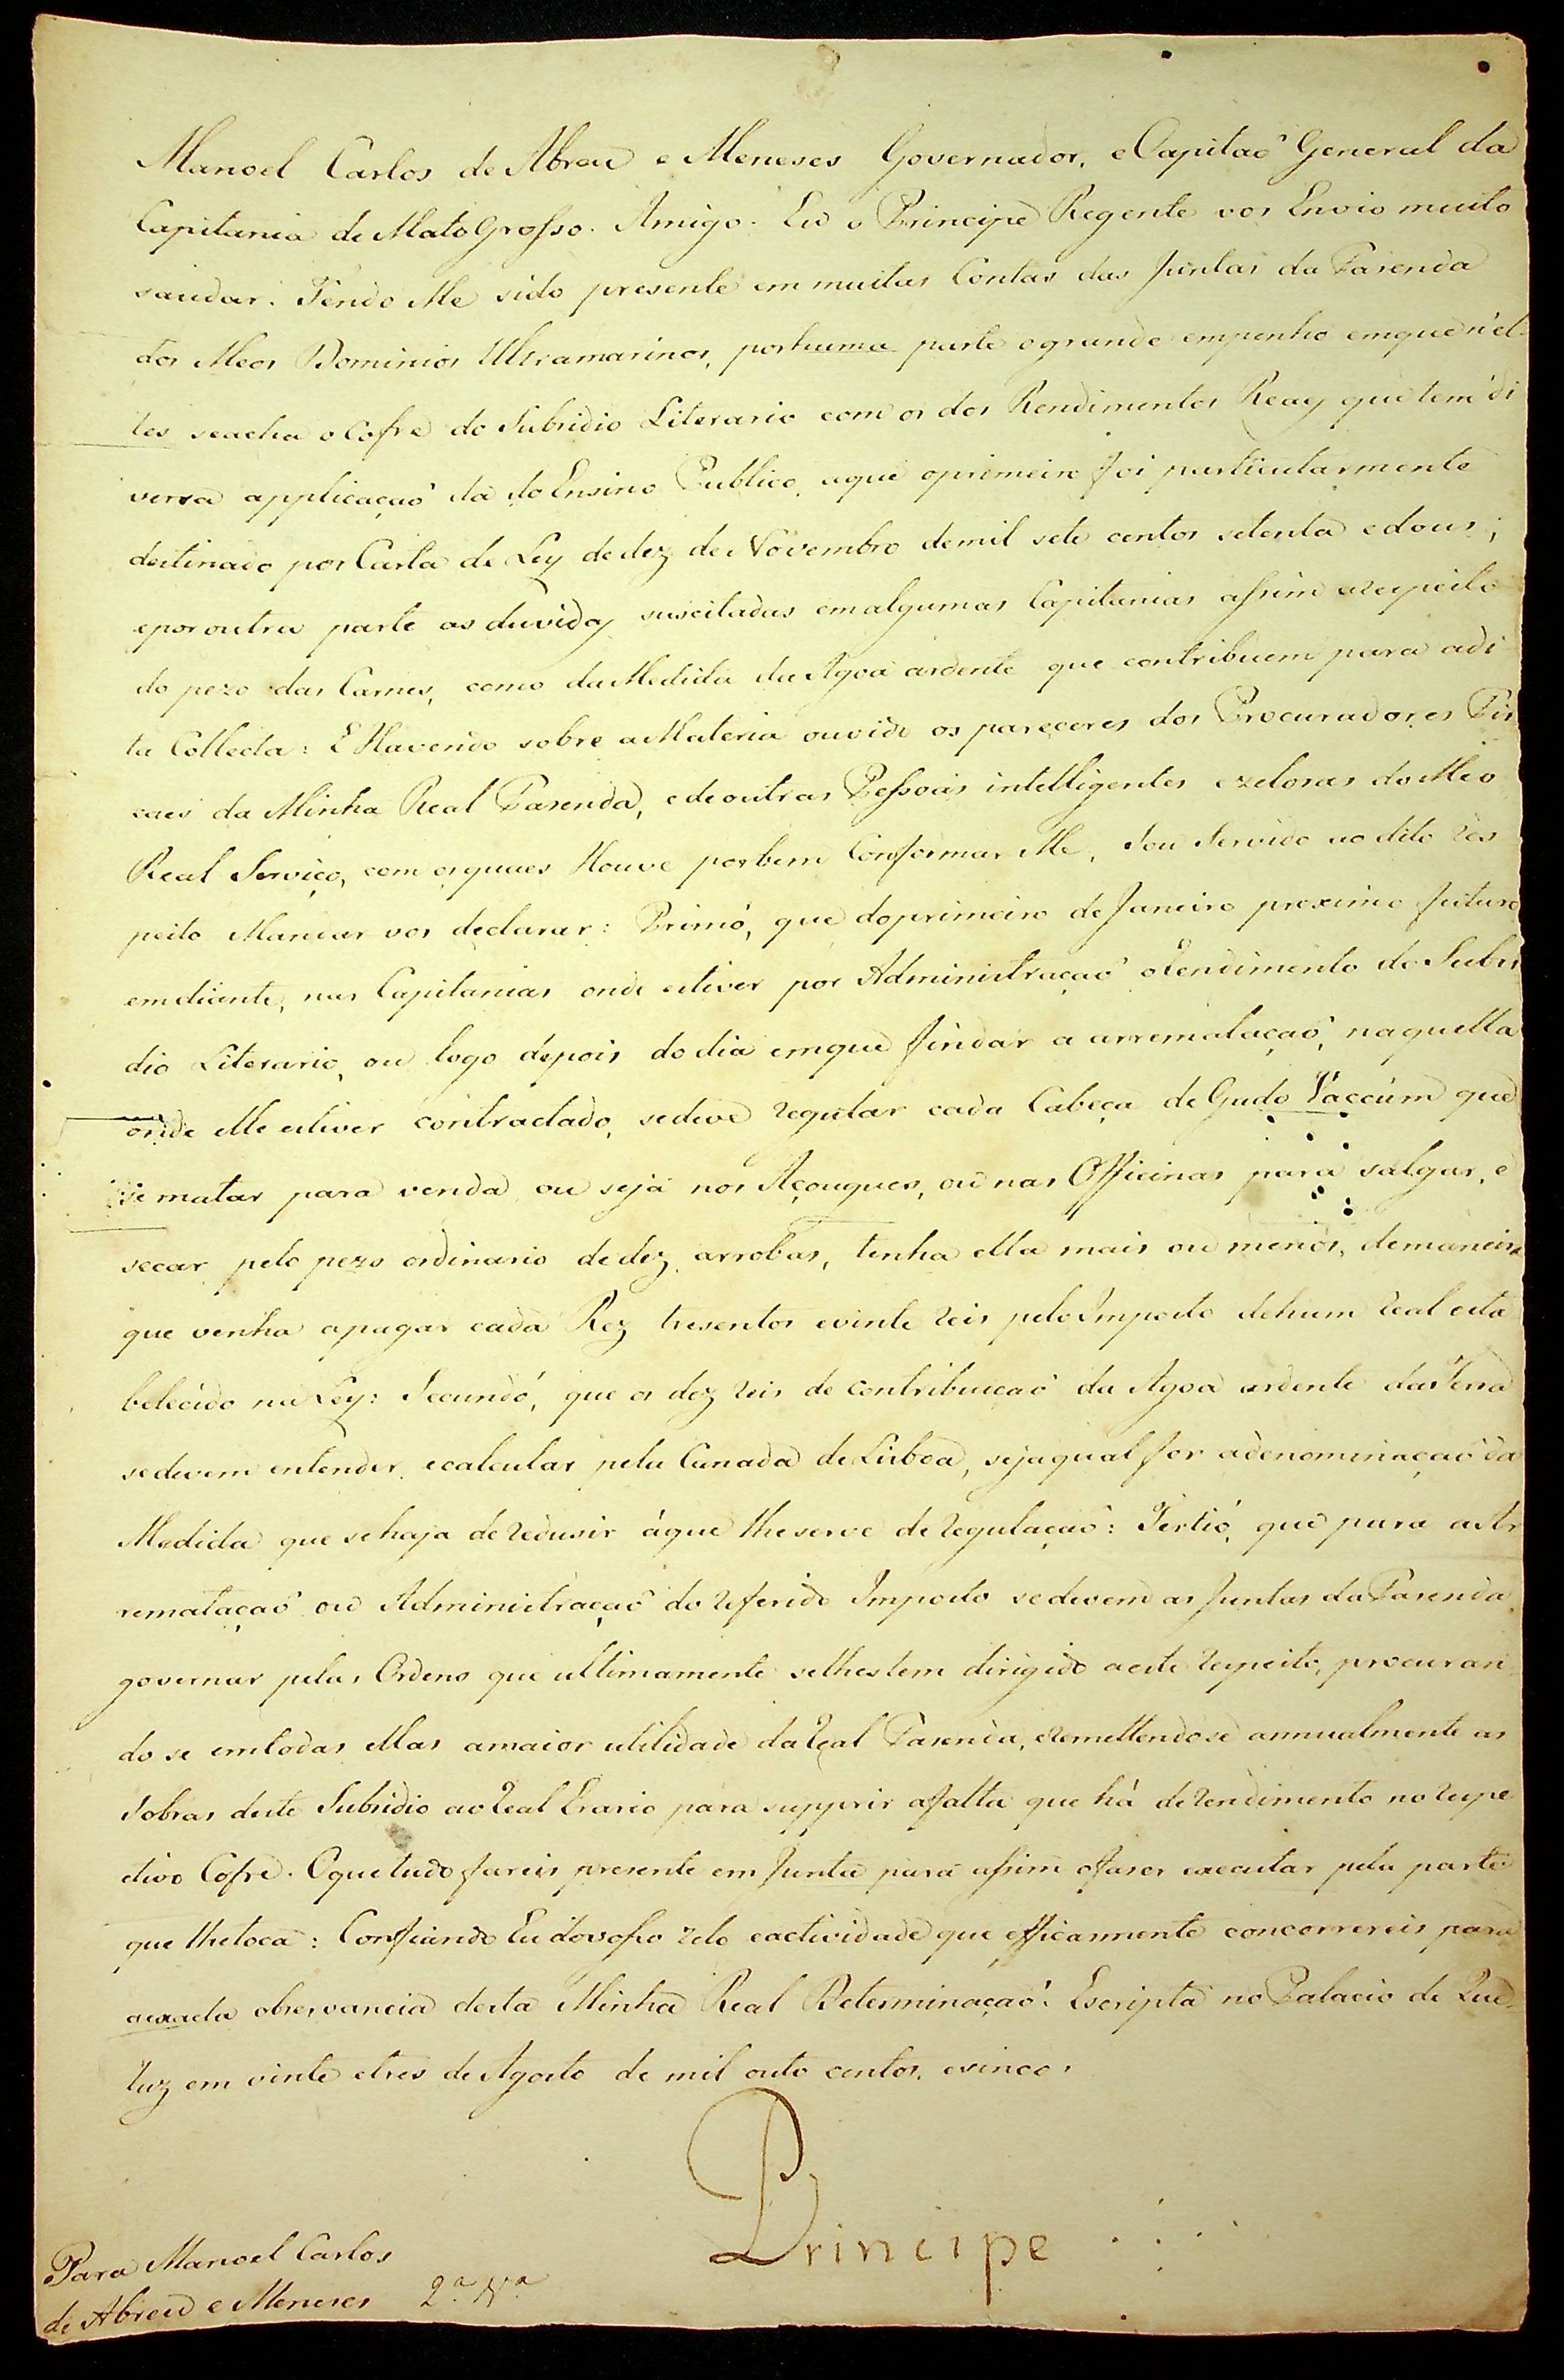 Manoel Carlos de Abreu e Meneses Governador, e Capitaõ General da
Capitania de Mato Grosso. Amigo. Eu o Principe Regente vos Envio muito
saudar. Tendo Me sido presente em muitas Contas das Juntas da Fasenda
dos Meos Dominios Ultramarinos, por huma parte o grande empenho em que n'el-
les se acha o Cofre do Subsidio Literario com os dos Rendimentos Reaes que tem di
versa applicaçaõ da do Ensino Publico, a que o primeiro foi particularmente
destinado por Carta de Ley de dez de Novembro de mil sete centos setenta e dous;
e por outra parte as duvidas suscitadas em algumas Capitanias assim a respeito
do pezo das Carnes, como da Medida da Agoa ardente que contribuem para a di
ta Collecta: E Havendo sobre a Materia ouvido os pareceres dos Procuradores Fis
caes da Minha Real Fasenda, e de outras Pessoas intelligentes e zelosas do Meo
Real Serviço, com os quaes Houve por bem Conformar Me, Sou Servido ao dito res
peito Mandar vos declarar: Primó, que do primeiro de Janeiro proximo futuro
em diante, nas Capitanias onde estiver por Administraçaõ o rendimento do Subsi
dio Literario, ou logo depois do dia em que findar a arremataçaõ, naquella
onde elle estiver contractado, se deve regular cada Cabeça de Gado Vaccúm que
se matar para venda ou seja nos Açougues, ou nas Officinas para salgar, e
secar pelo pezo ordinario de dez arrobas, tenha ella mais ou menos, de maneira
que venha a pagar cada Rez tresentos e vinte reis pelo Imposto de hum real esta
belecido na Ley: Secundó, que os dez reis de contribuiçaõ da Agoa ardente da Terra
se devem entender, e calcular pela Canada de Lisboa, seja qual for a denominaçaõ da
Medida que se haja de redusir á que lhe serve de regulaçaõ: Tertió, que para a Ar
remataçaõ ou Administraçaõ do referido Imposto se devem as Juntas da Fasenda
governar pelas Ordens que ultimamente se lhes tem dirigido a este respeito, procuran
do se em todas ellas a maior utilidade da Real Fasenda, e remettendo se annualmente as
Sobras deste Subsidio ao Real Erario para supprir a falta que há de rendimento no respe
ctivo Cofre. O que tudo fareis presente em Junta para assim o faser executar pela parte
que lhe toca: Confiando Eu do vosso zelo e actividade que efficasmente concorrereis para
a exacta observancia desta Minha Real Determinaçaõ. Escripta no Palacio de Que-
luz em vinte e tres de Agosto de mil outo centos, e sinco.
Principe
Para Manoel Carlos
de Abreu e Meneses 2.ª Vª